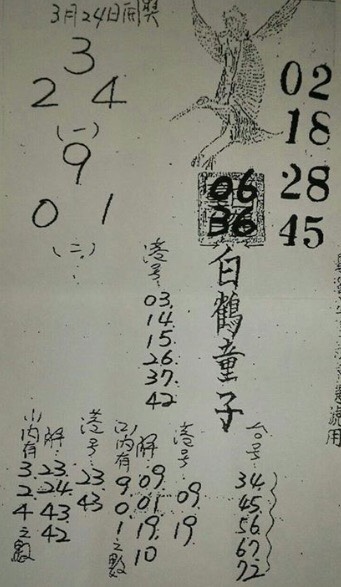 3月24日開獎
3
2 4
(一)
9
0 1
(二)
02
18
28
45
06
36
白鶴童子
港号:
03.
14.
15.
26.
37.
42
台号:
34.
45.
56.
67.
72
港号
09.
19
解:
09.
01
19.
10
(2)内有
9
0
1
之數
港号:
23.
43
解:
23.
24.
43.
42
(1)内有
3.
2.
4
之數
號用